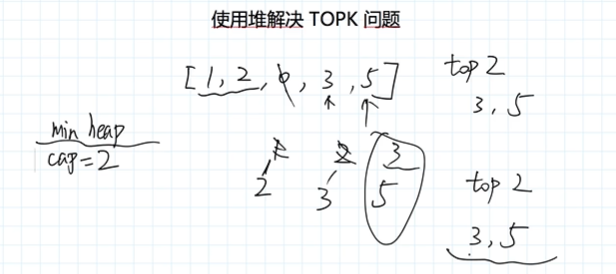 使用堆解决 TOPK 问题
[1, 2, 0, 3, 5]
top 2
3, 5
min heap
cap=2
1 2 3
2 3 5
top 2
3, 5